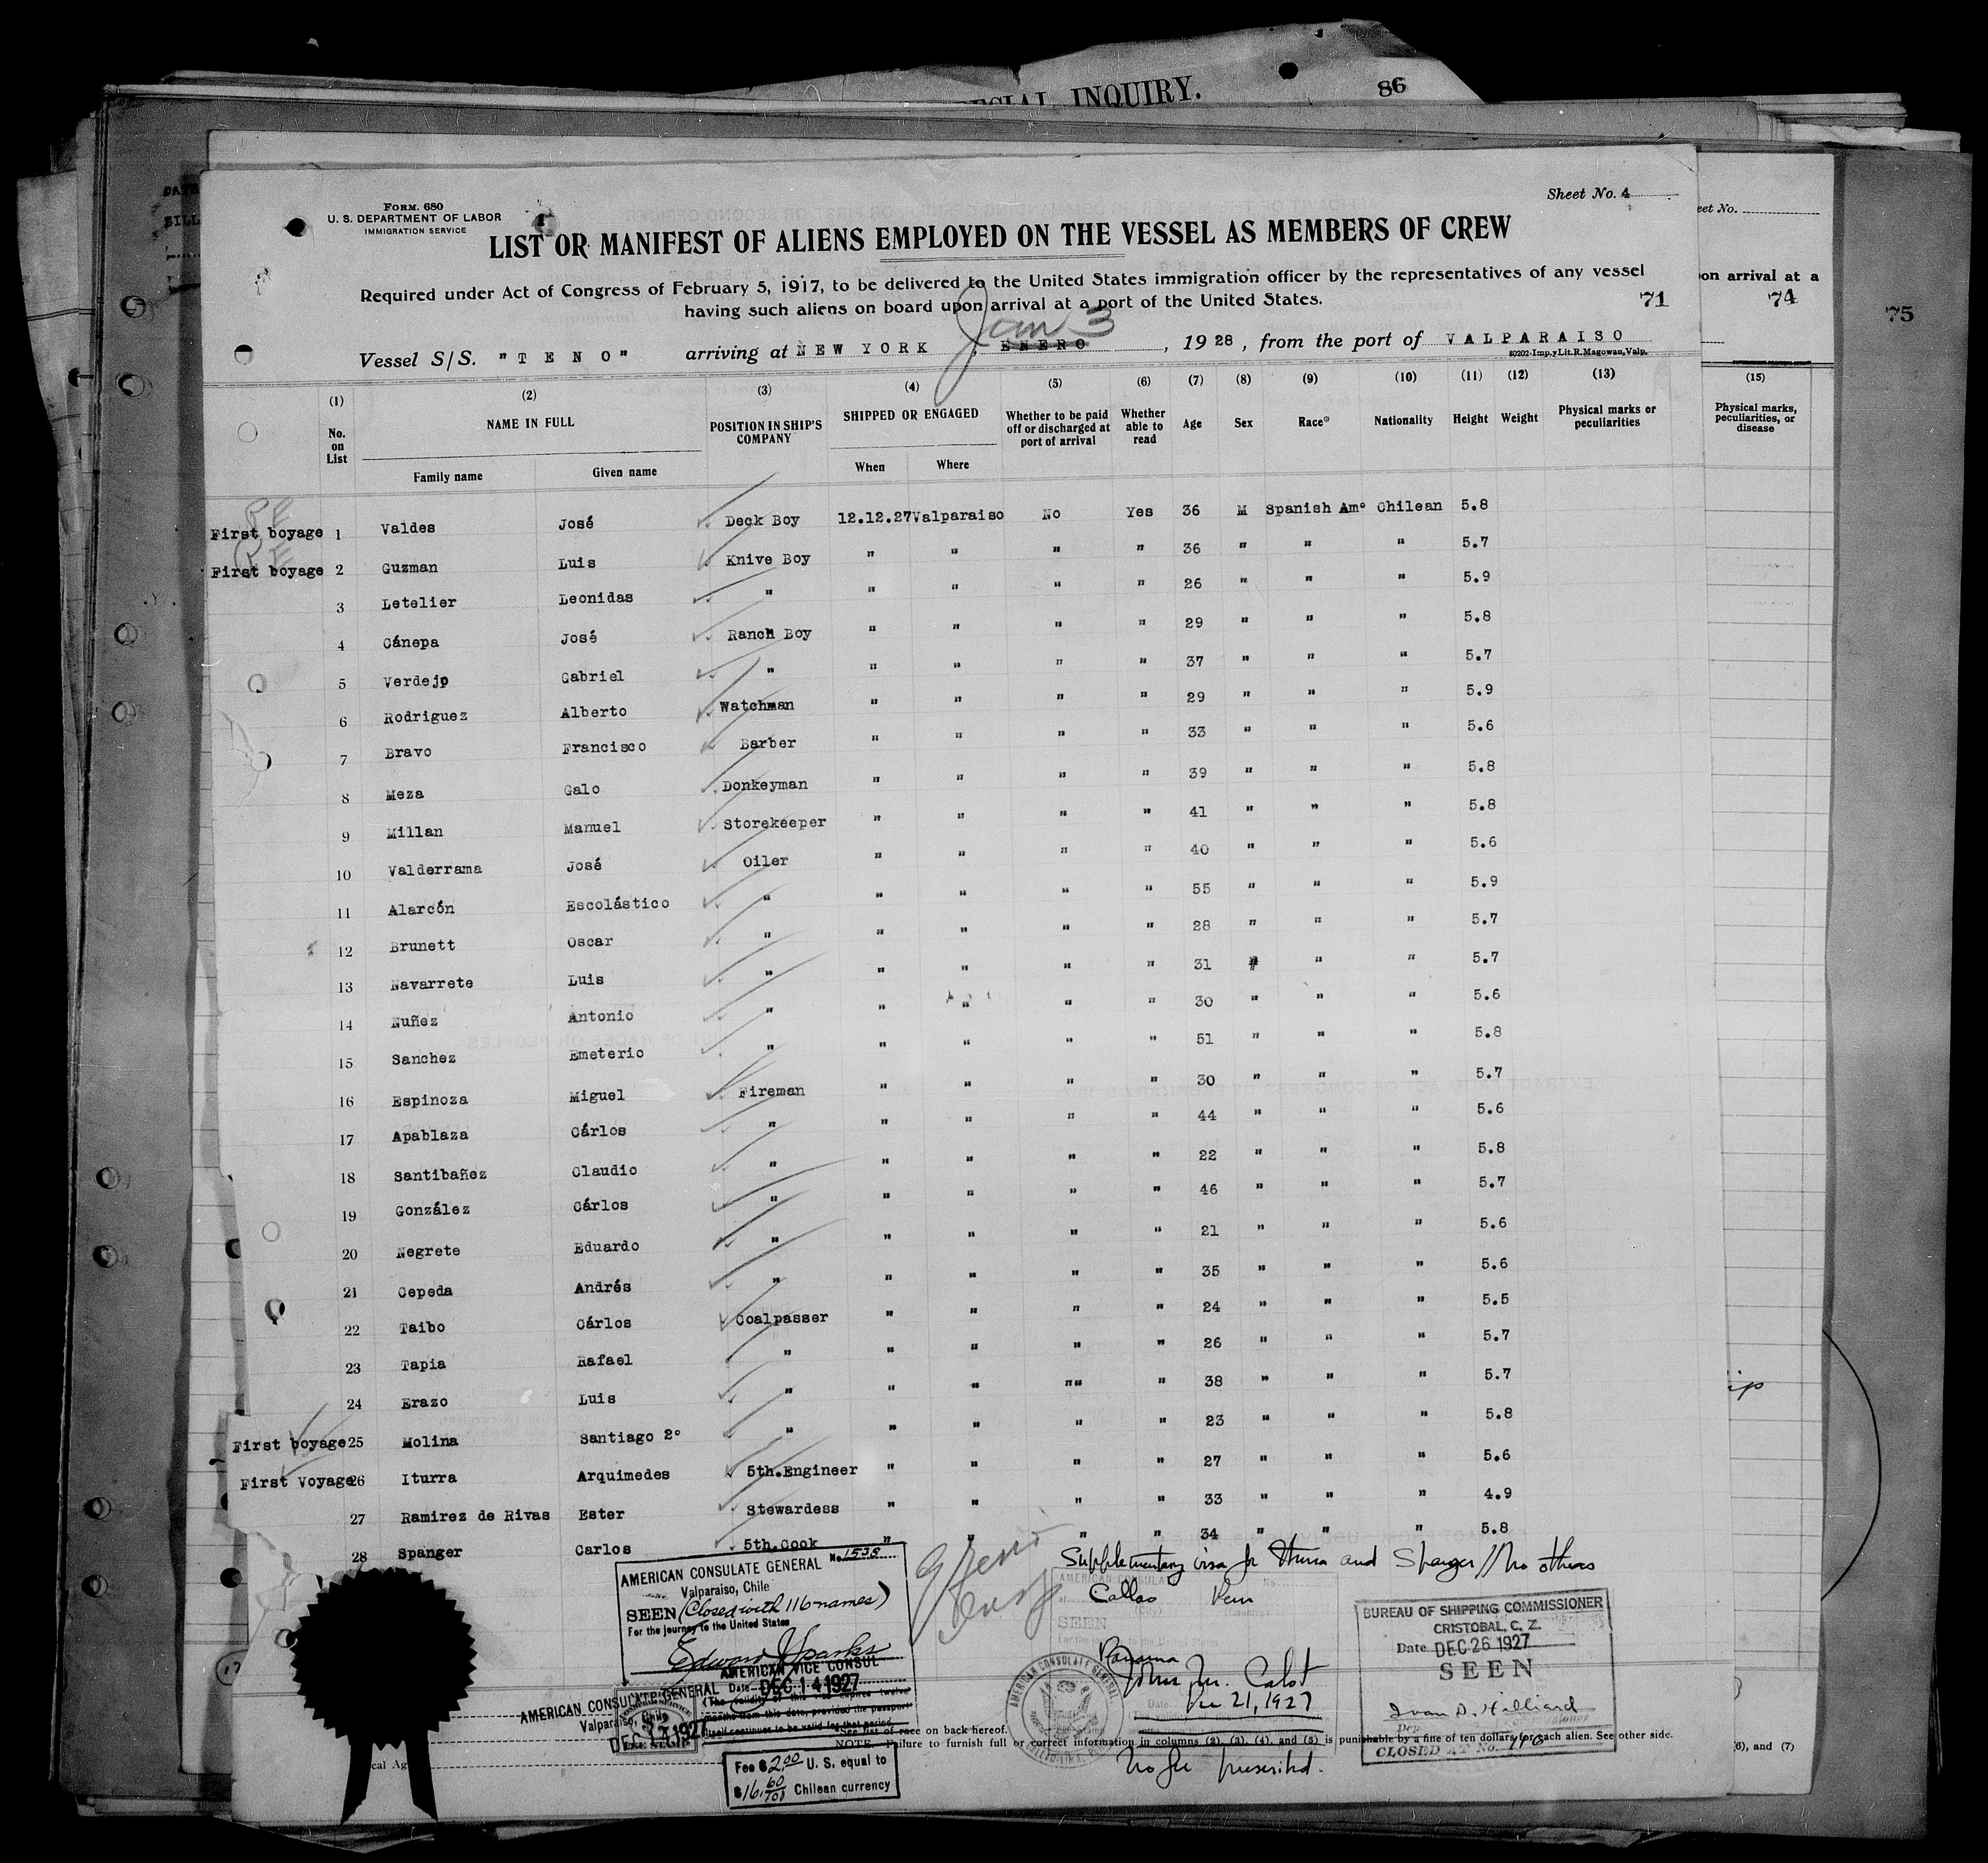 SPECIAL INQUIRY.
86
Sheet No. 4
FORM. 680
U. S. DEPARTMENT OF LABOR
IMMIGRATION SERVICE
LIST OR MANIFEST OF ALIENS EMPLOYED ON THE VESSEL AS MEMBERS OF CREW
Required under Act of Congress of February 5, 1917, to be delivered to the United States immigration officer by the representatives of any vessel
having such aliens on board upon arrival at a port of the United States.
71
Jan 3
Vessel S/S. "TENO" arriving at NEW YORK, ENERO, 1928, from the port of VALPARAISO
80202-Imp.yLit.R.Magowan,Valp.
(1) (2) (3) (4) (5) (6) (7) (8) (9) (10) (11) (12) (13)
No. on List NAME IN FULL POSITION IN SHIP'S COMPANY SHIPPED OR ENGAGED Whether to be paid off or discharged at port of arrival Whether able to read Age Sex Race* Nationality Height Weight Physical marks or peculiarities
Family name Given name When Where
First boyage 1 Valdes José Deck Boy 12.12.27 Valparaiso No Yes 36 M Spanish Amº Chilean 5.8
First boyage 2 Guzman Luis Knive Boy " " " " 36 " " " 5.7
3 Letelier Leonidas " " " " " 26 " " " 5.9
4 Cánepa José Ranch Boy " " " " 29 " " " 5.8
5 Verdejo Gabriel " " " " " 37 " " " 5.7
6 Rodriguez Alberto Watchman " " " " 29 " " " 5.9
7 Bravo Francisco Barber " " " " 33 " " " 5.6
8 Meza Galo Donkeyman " " " " 39 " " " 5.8
9 Millan Manuel Storekeeper " " " " 41 " " " 5.8
10 Valderrama José Oiler " " " " 40 " " " 5.6
11 Alarcón Escolástico " " " " " 55 " " " 5.9
12 Brunett Oscar " " " " " 28 " " " 5.7
13 Navarrete Luis " " " " " 31 " " " 5.7
14 Nuñez Antonio " " " " " 30 " " " 5.6
15 Sanchez Emeterio " " " " " 51 " " " 5.8
16 Espinoza Miguel Fireman " " " " 30 " " " 5.7
17 Apablaza Cárlos " " " " " 44 " " " 5.6
18 Santibañez Claudio " " " " " 22 " " " 5.8
19 González Cárlos " " " " " 46 " " " 5.7
20 Negrete Eduardo " " " " " 21 " " " 5.6
21 Cepeda Andrés " " " " " 35 " " " 5.6
22 Taibo Cárlos Coalpasser " " " " 24 " " " 5.5
23 Tapia Rafael " " " " " 26 " " " 5.7
24 Erazo Luis " " " "" " 38 " " " 5.7
First boyage 25 Molina Santiago 2º " " " " " 23 " " " 5.8
First Voyage 26 Iturra Arquimedes 5th.Engineer " " " " 27 " " " 5.6
27 Ramirez de Rivas Ester Stewardess " " " " 33 " " " 4.9
28 Spanger Carlos 5th.Cook " " " " 34 " " " 5.8
AMERICAN CONSULATE GENERAL No. 1538
Valparaiso, Chile
SEEN (Closed with 116 names)
For the journey to the United States
Edward J Sparks
AMERICAN VICE CONSUL
Date DEC 14 1927
(The validity of this visa expires twelve
months from this date, provided the passport
itself continues to be valid for that period
AMERICAN CONSULATE GENERAL
Valparaiso, Chile
DEC 14 1927
$2
FEE STAMP
Fee $2.00 U.S. equal to
$16.60/100 Chilean currency
Supplementary visa for Iturra and Spanger // No others
Callao Peru
SEEN
Panama
Dec 21, 1927
No fee prescribed.
AMERICAN CONSULATE GENERAL
BUREAU OF SHIPPING COMMISSIONER
CRISTOBAL, C. Z.
Date DEC 26 1927
SEEN
Ivan D. Hilliard
CLOSED AT No. 116
*See list of race on back hereof.
NOTE. Failure to furnish full or correct information in columns (2), (3), (4), and (5) is punishable by a fine of ten dollars for each alien. See other side.
eet No.
on arrival at a
74
75
(15)
Physical marks, peculiarities, or disease
ip
(6), and (7)
cal Ag